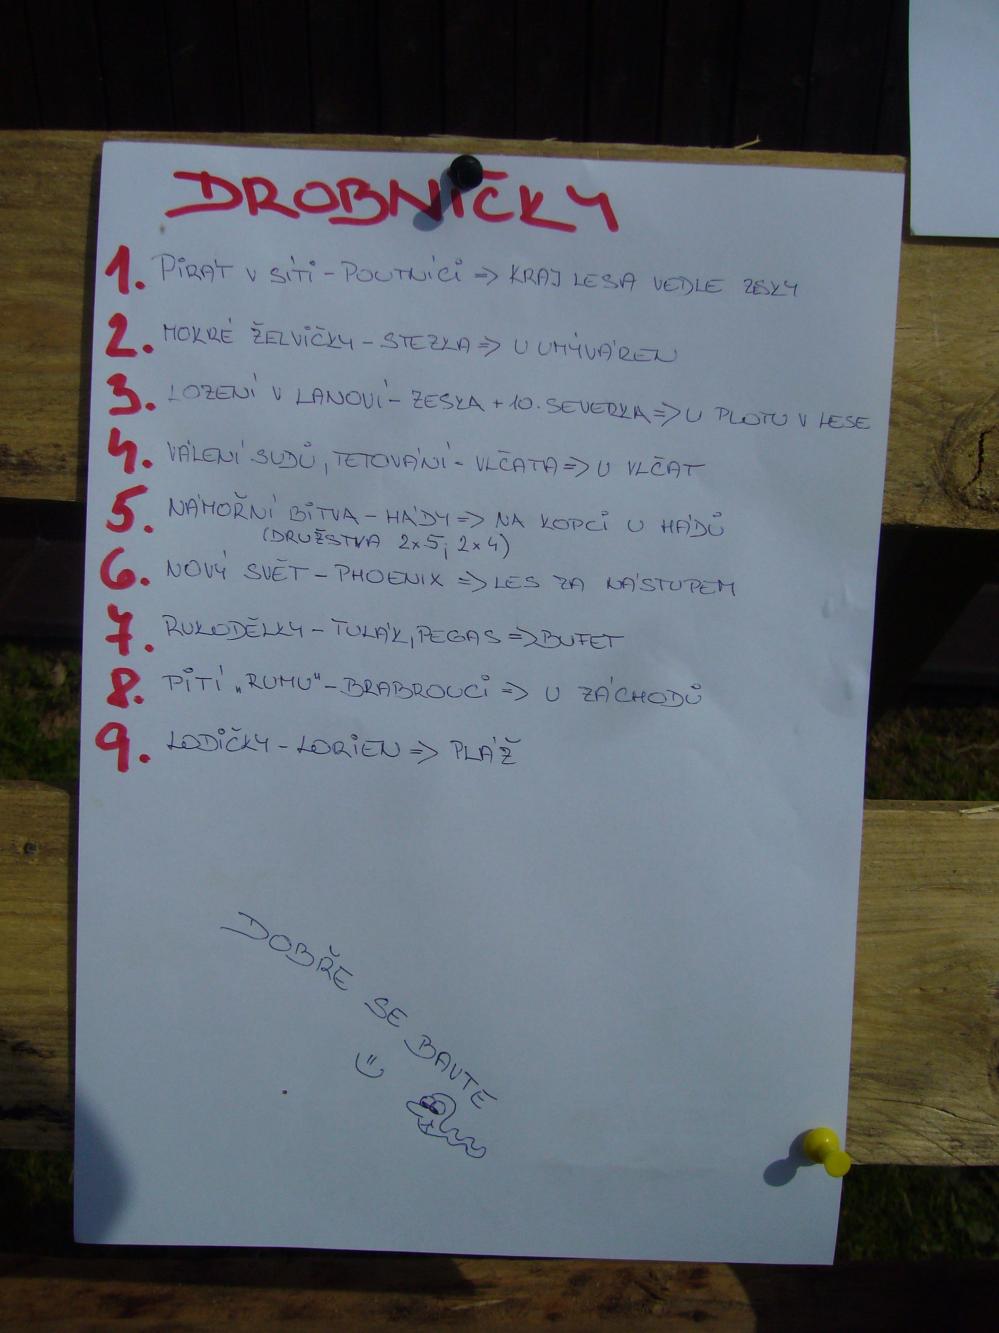 DROBNIČKY
1. PIRÁT V SÍTI - POUTNÍCI => KRAJ LESA VEDLE ZESKY
2. MOKRÉ ŽELVIČKY - STEZKA => U UMÝVÁREN
3. LOZENÍ V LANOVÍ - ZESKA + 10. SEVERKA => U PLOTU V LESE
4. VÁLENÍ SUDŮ, TETOVÁNÍ - VLČATA => U VLČAT
5. NÁMOŘNÍ BITVA - HÁDY => NA KOPCI U HÁDŮ
(DRUŽSTVA 2x5; 2x4)
6. NOVÝ SVĚT - PHOENIX => LES ZA NÁSTUPEM
7. RUKODĚLKY - TULÁK, PEGAS => BUFET
8. PITÍ „RUMU" - BRABROUCI => U ZÁCHODŮ
9. LODIČKY - LORIEN => PLÁŽ
DOBŘE SE BAVTE